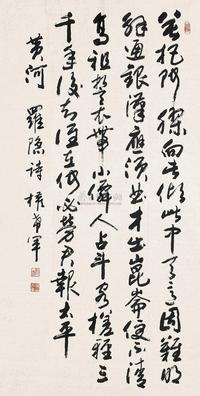 莫把阿膠向此傾此中天意固難明
解通銀漢應須曲才出崑崙便不清
高祖誓功衣帶小僊人占斗客槎輕三
千年後知誰在何必勞君報太平
黄河 羅隱诗 權希軍